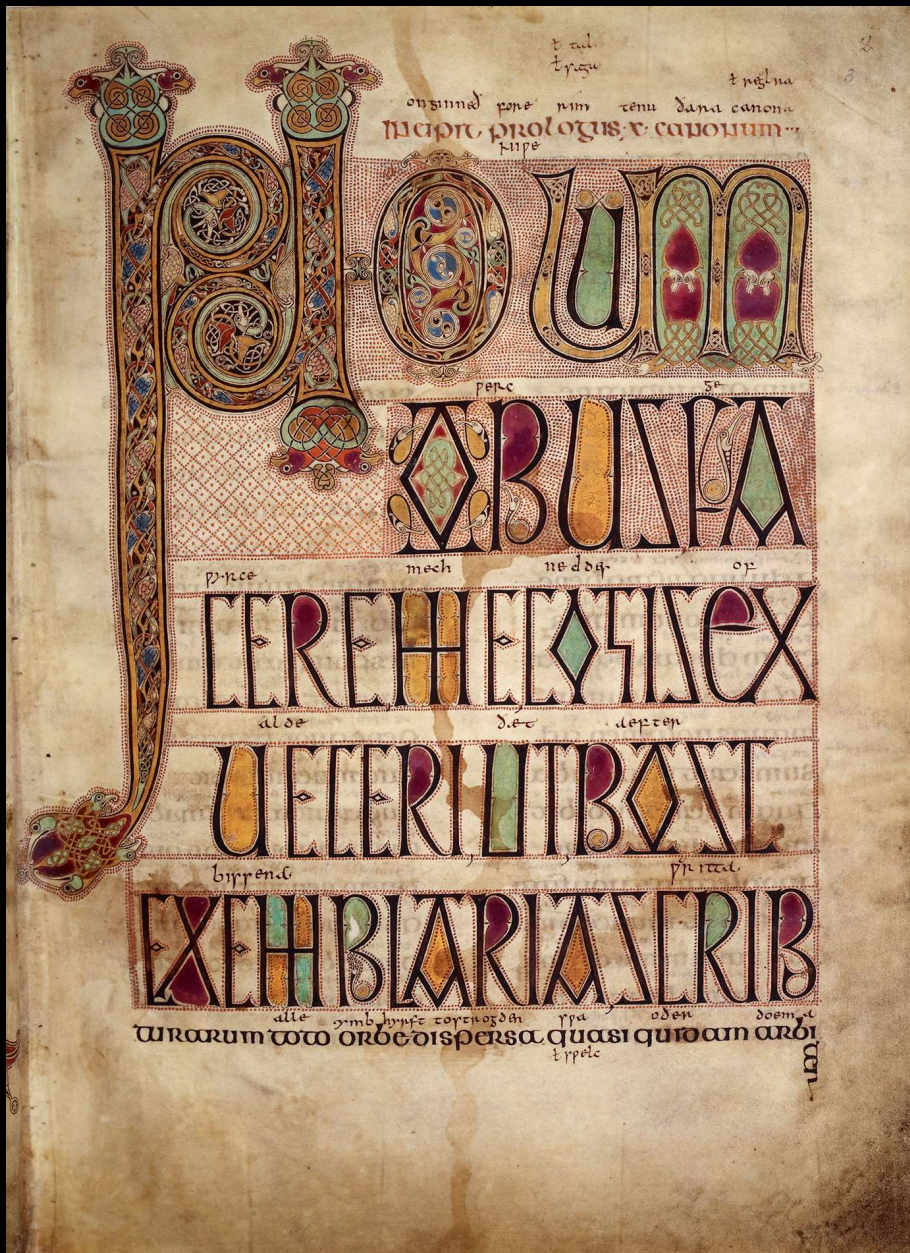 ł regula
onginneð fore rim tenu ðara canona
Incipit prologus x canonum
niwe
NOUUM
werc ge
OPUS FA
wyrce mech neddes of
CERE ME COGIS EX
alde ðæt aefter
UETERI UT POST
bissena writta
EXEMPLARIA SCRIP
alle ymb hyrft tostrogden swa oðer doema
turarum toto orbe dispersa quasi quidam arbi
ł swelc
ter